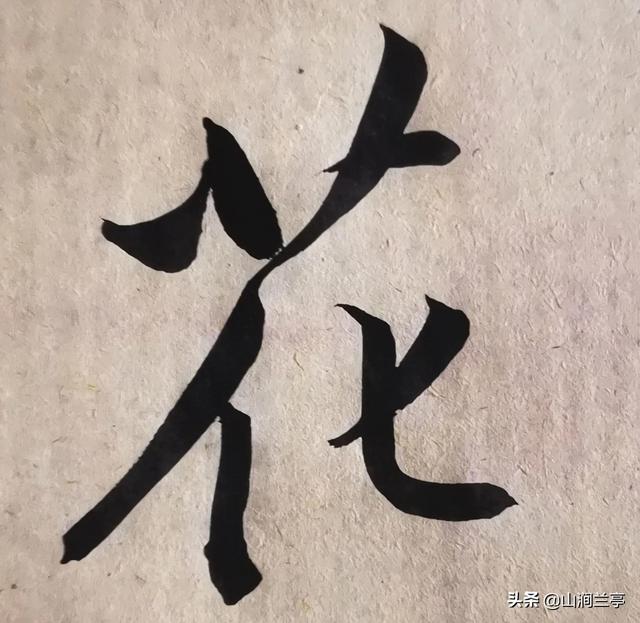 花
头条 @山涧兰亭